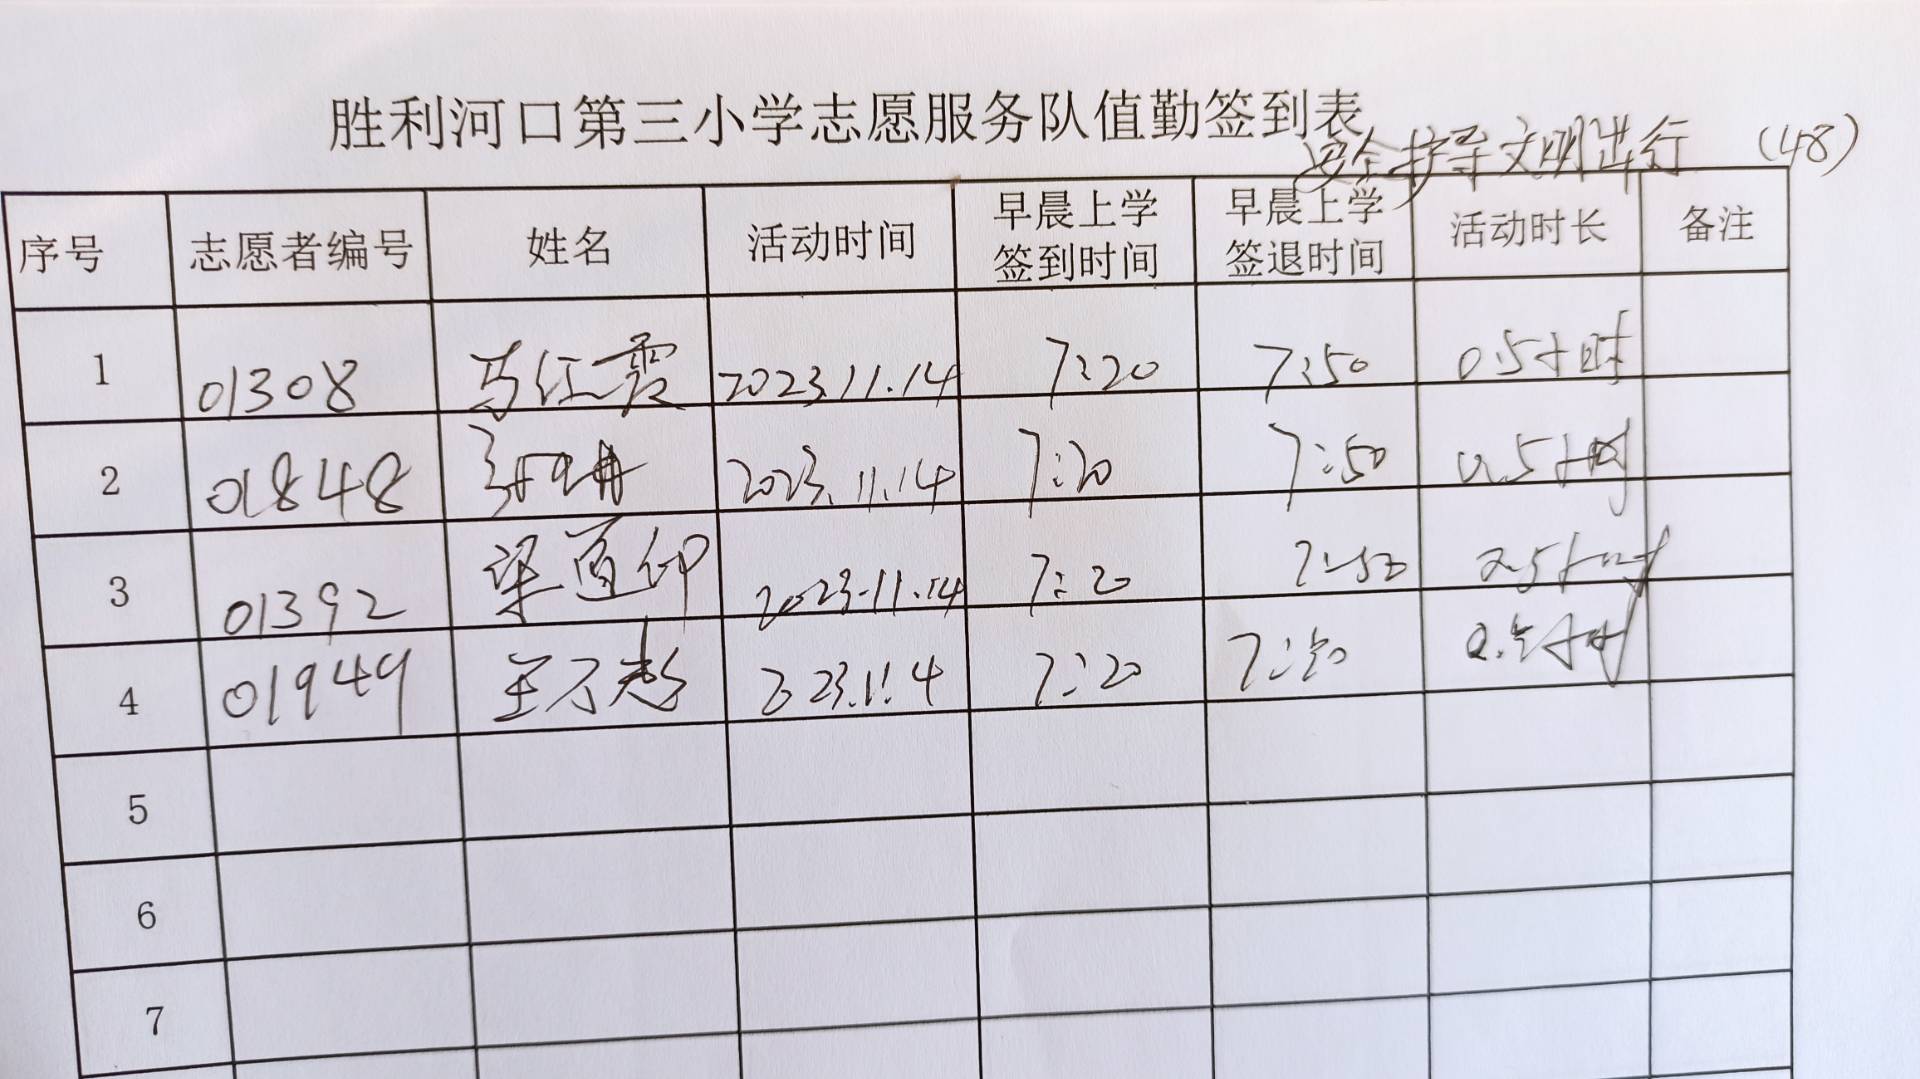 胜利河口第三小学志愿服务队值勤签到表
安全护导文明出行 (48)
序号 志愿者编号 姓名 活动时间 早晨上学签到时间 早晨上学签退时间 活动时长 备注
1 01308 马红霞 2023.11.14 7:20 7:50 0.5小时
2 01848 2023.11.14 7:20 7:50 0.5小时
3 01392 梁道印 2023.11.14 7:20 7:50 0.5小时
4 01949 2023.11.14 7:20 7:50 0.5小时
5
6
7